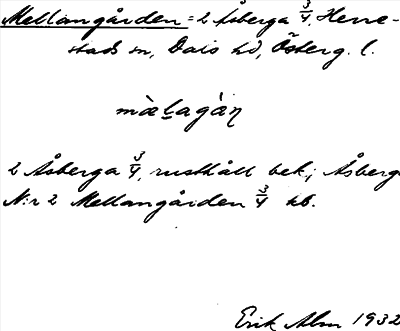 Mellangården = 2 Åsberga 3/4, Herre-
stads sn, Dals hd, Österg. l.
mæ̀lagàɳ
2 Åsberga 3/4, rusthåll bek.; Åsberg
N:r 2 Mellangården 3/4 kb.
Erik Alm 1932